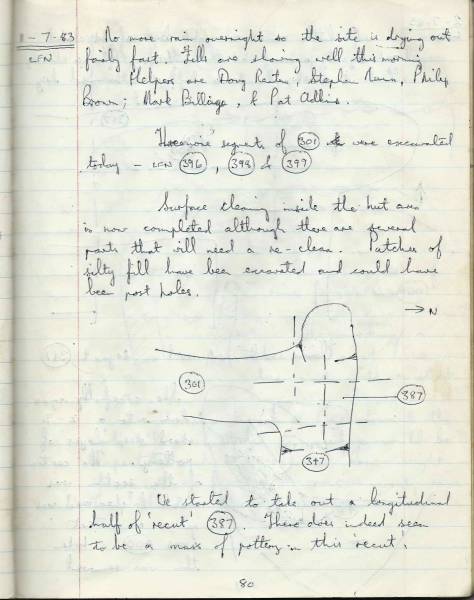 11-7-83 No more rain overnight so the site is drying out
LFN fairly fast. Fills are showing well this morning
Helpers are Doug Rentin; Stephen Nunn, Philip
Brown; Mark Billinge, & Pat Adkins.
Three more segments of 301 were excavated
today - LFN 396, 398 & 399
Surface cleaning inside the hut area
is now completed although there are several
parts that will need a re-clean. Patches of
silty fill have been excavated and could have
been post holes.
→ N
301
387
347
We started to take out a longitudinal
half of 'recut' 387. There does indeed seem
to be a mass of pottery in this 'recut'.
80